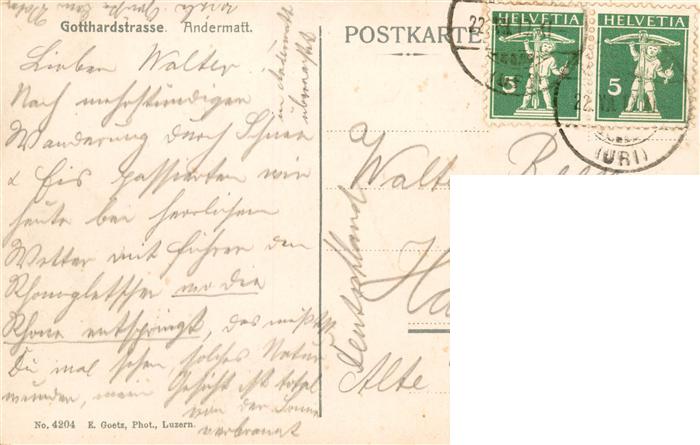 Gotthardstrasse. Andermatt.
POSTKARTE
HELVETIA
HELVETIA
5
5
22.
22.
(URI)
Lieben Walter!
Nach mehrstündigen
Wanderung durch Schnee
& Eis passierten wir
heute bei herrlichem
Wetter mit Führer den
Rhonegletscher wo die
Rhone entspringt, das müsstest
Du mal sehen, solches Natur
wunder, mein Gesicht ist total
von der Sonne
verbrannt
in Andermatt
übernachtet
Walter
Ha
Deutschland
Alte
No. 4204 E. Goetz, Phot., Luzern.